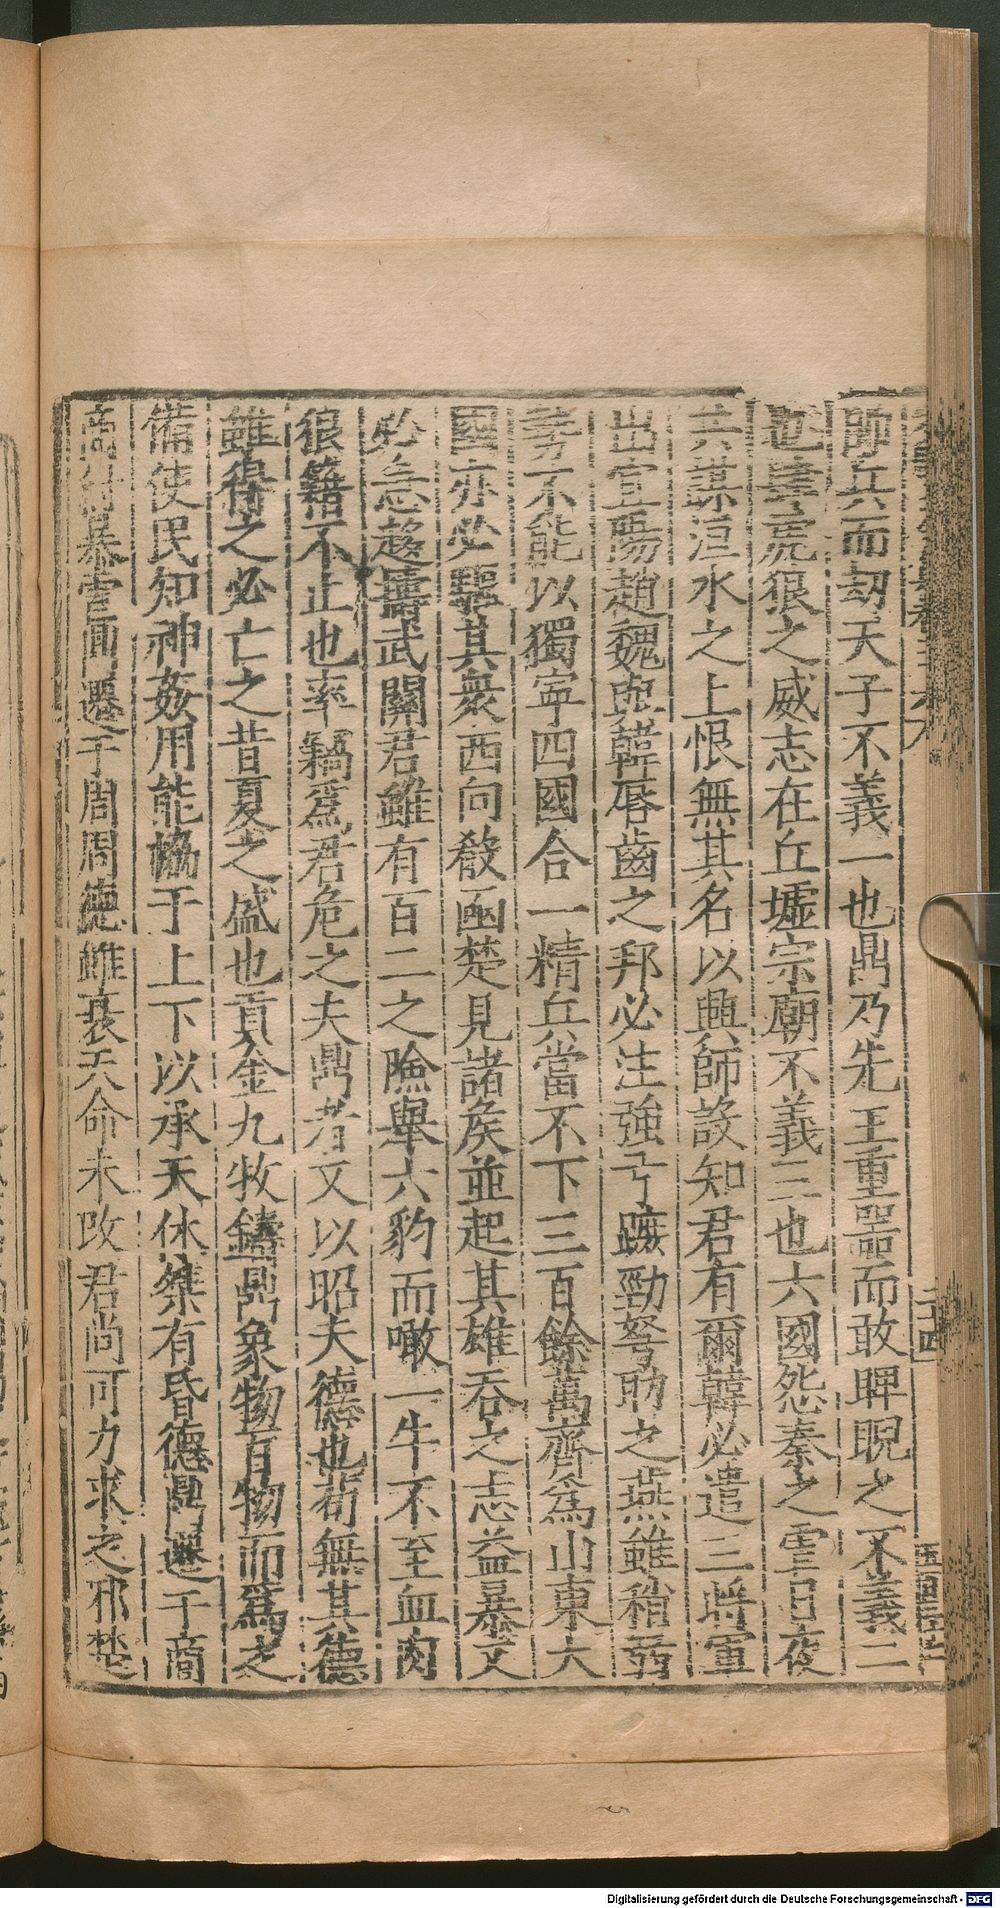 師兵而刼天子不義一也鼎乃先王重噐而敢睥睨之不義二
也虎狼之威志在丘墟宗廟不義三也六國怨秦之雪日夜
共謀洹水之上恨無其名以興師設知君有爾韓必遣三將軍
出宜陽趙魏與韓唇齒之邦必注強弓蹶勁弩助之燕雖稍弱
勢不能以獨寧四國合一精兵當不下三百餘萬齊爲山東大
國亦必驅其衆西向殽函楚見諸矦並起其雄吞之志益暴又
必急趍擣武關君雖有百二之險舉六豹而噉一牛不至血肉
狼籍不止也率竊爲君危之夫鼎者文以昭夫德也苟無其德
雖得之必亡之昔夏之盛也貢金九牧鑄鼎象物百物而爲之
備使民知神姦用能協于上下以承天休桀有昏德鼎遷于商
商紂暴虐鼎遷于周周德雖衰天命未改君尚可力求之邪楚
二十四
Digitalisierung gefördert durch die Deutsche Forschungsgemeinschaft - DFG